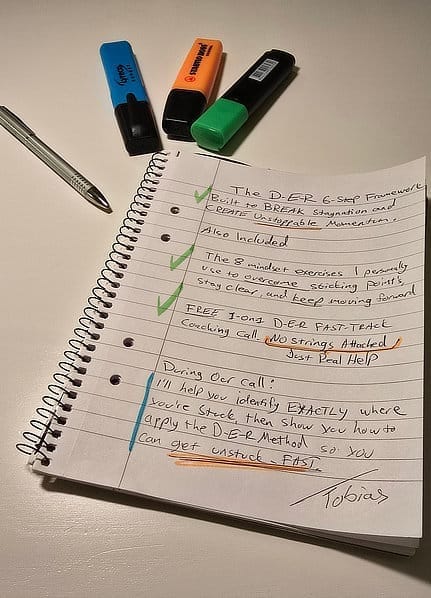 Lyreco
STABILO BOSS
The D-E-R 6-Step Framework
Built to BREAK Stagnation and
CREATE Unstoppable Momentum.
Also Included
The 8 mindset exercises I personally
use to overcome sticking point's,
stay clear, and keep moving forward
FREE 1-on-1 D-E-R FAST-TRACK
Coaching Call NO Strings Attached
Just Real Help
During Our Call:
I'll help you identify EXACTLY where
you're stuck, then show you how to
apply the D-E-R Method so you
can get unstuck - FAST.
Tobias